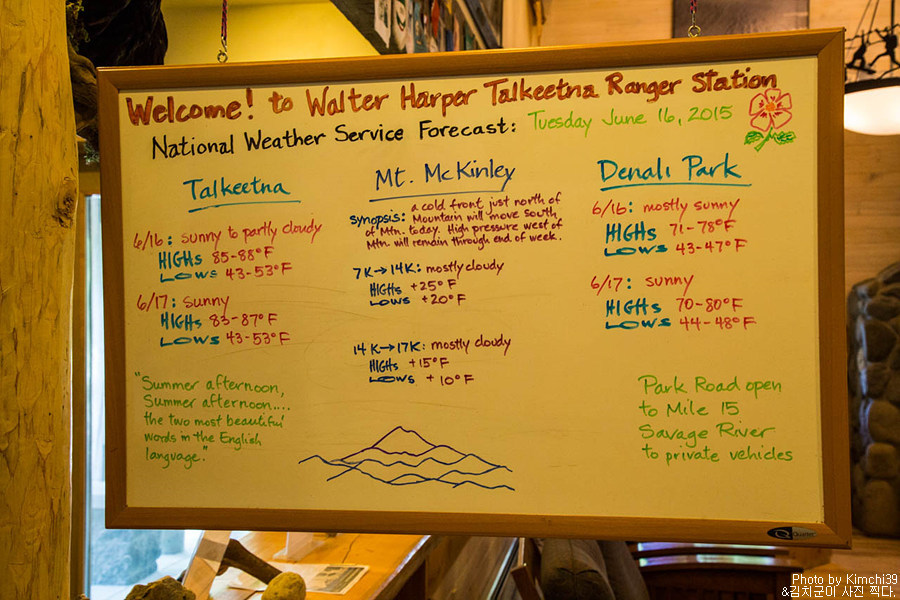 Welcome! to Walter Harper Talkeetna Ranger Station
National Weather Service Forecast: Tuesday June 16, 2015
Talkeetna
6/16: sunny to partly cloudy
HIGHs 85-88°F
LOWs 43-53°F
6/17: sunny
HIGHs 83-87°F
LOWs 43-53°F
"Summer afternoon,
Summer afternoon....
the two most beautiful
words in the English
language."
Mt. McKinley
synopsis: a cold front just north of
Mountain will move south
of Mtn. today. High pressure west of
Mtn. will remain through end of week.
7K→14K: mostly cloudy
HIGHs +25°F
LOWs +20°F
14K→17K: mostly cloudy
HIGHs +15°F
LOWs +10°F
Denali Park
6/16: mostly sunny
HIGHs 71-78°F
LOWs 43-47°F
6/17: sunny
HIGHs 70-80°F
LOWs 44-48°F
Park Road open
to Mile 15
Savage River
to private vehicles
Quartet
Photo by Kimchi39
&김치군이 사진 찍다.